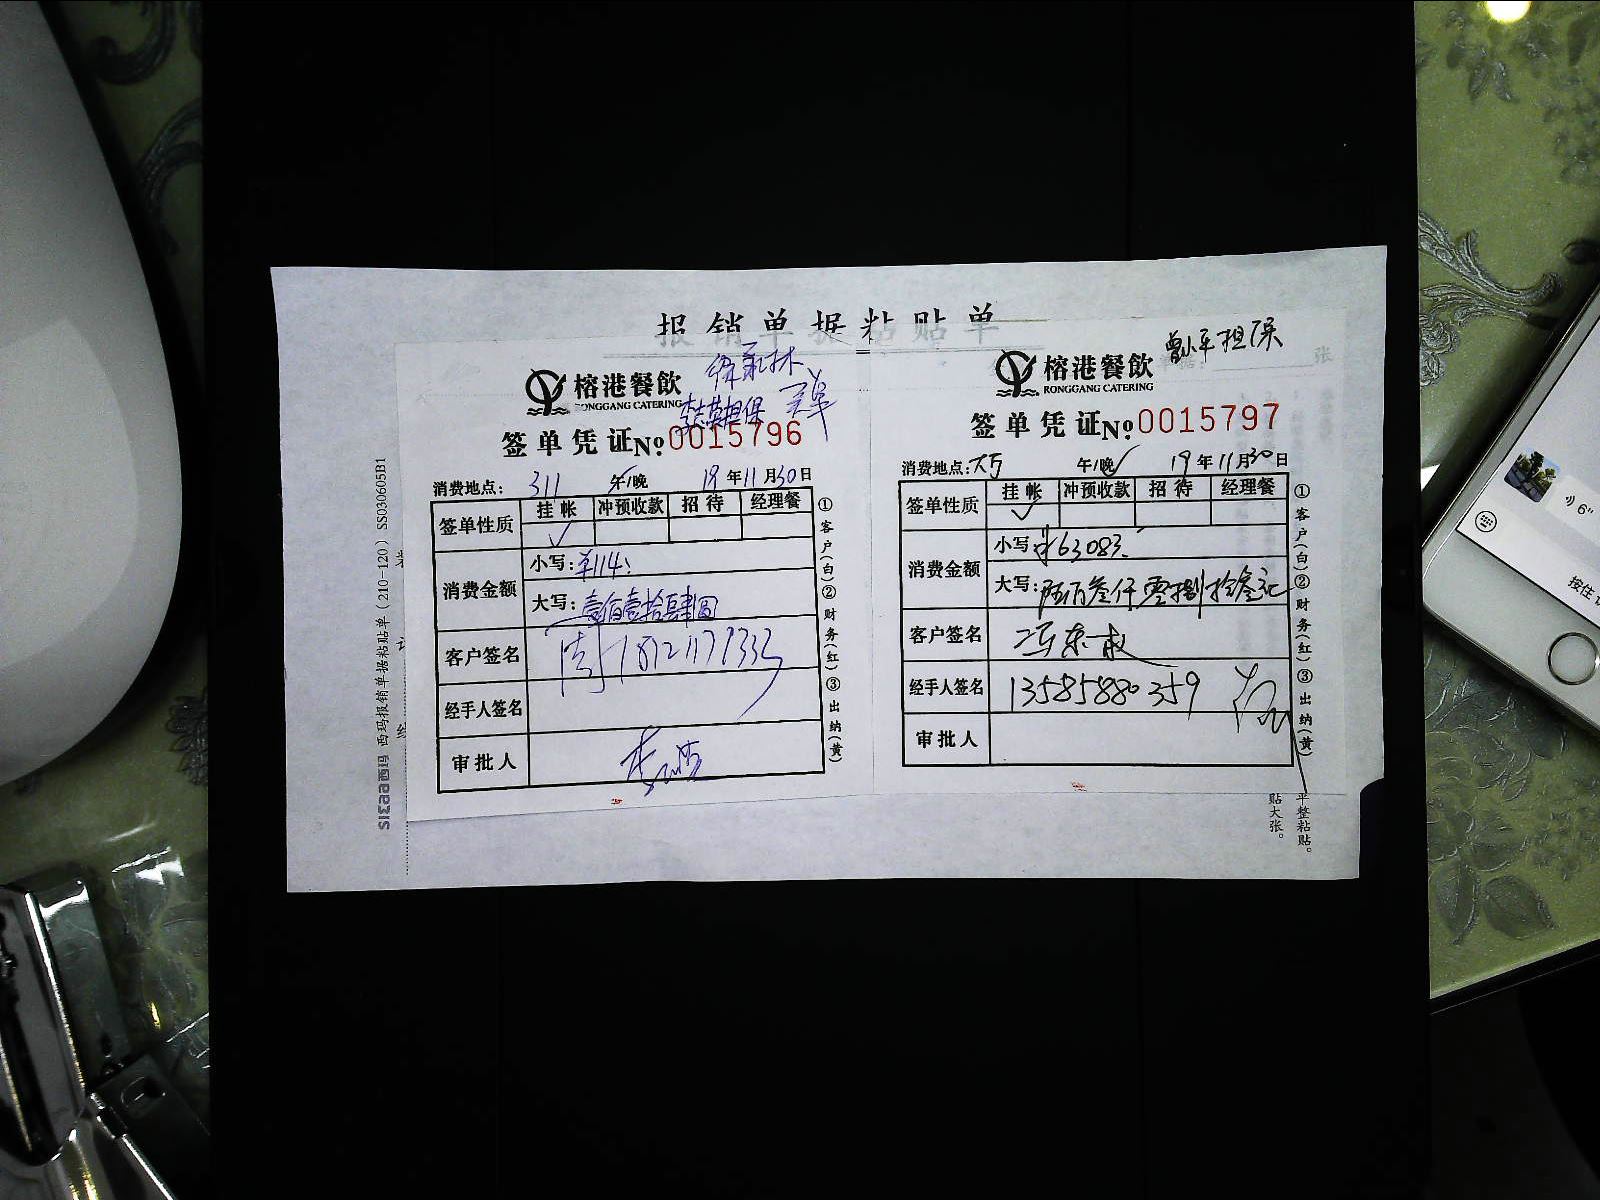 报销单据粘贴单
榕港餐飲
RONGGANG CATERING
李志荣担保
签单凭证No.0015796
消费地点: 311 午/晚 19年11月30日
签单性质 挂帐 冲预收款 招待 经理餐
✓
消费金额
小写: ¥114.
大写: 壹佰壹拾肆圆
客户签名 周
经手人签名
审批人
①客户(白)②财务(红)③出纳(黄)
曾小平担保
榕港餐飲
RONGGANG CATERING
签单凭证No.0015797
消费地点: 大厅 午/晚✓ 19年11月30日
签单性质 挂帐 冲预收款 招待 经理餐
✓
消费金额
小写: ¥63083.
大写:
客户签名 冯东成
经手人签名 13585880359
审批人
①客户(白)②财务(红)③出纳(黄)
张
平整粘贴。
贴大张。
西玛 西玛报销单据粘贴单(210-120) SS030605B1
装
订
线
6"
按住